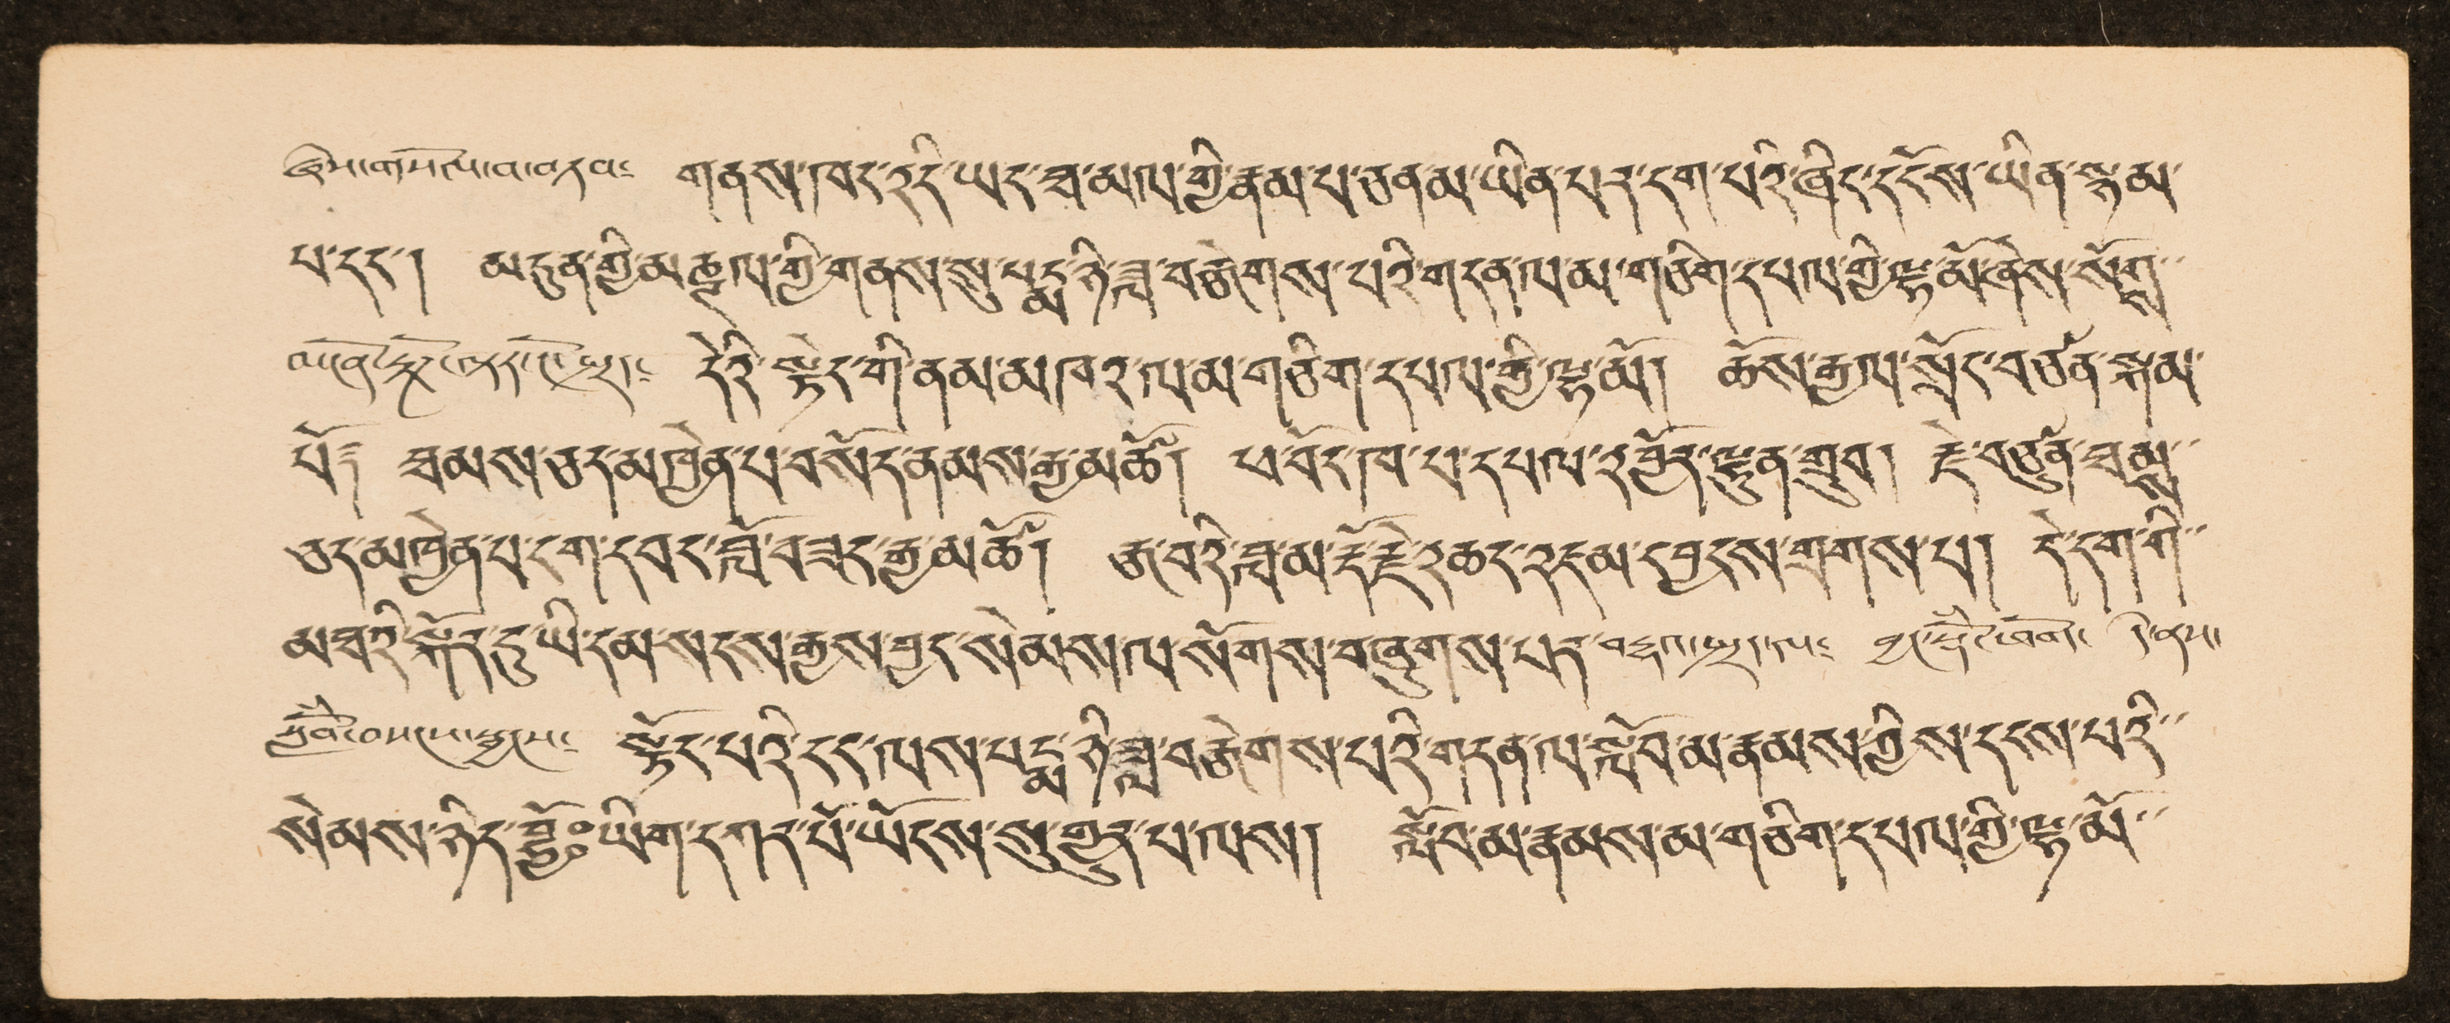 གནས་ཁང་འདི་ཡང་ཐ་མལ་གྱི་རྣམ་པ་ཅན་མ་ཡིན་པར་དག་པའི་ཞིང་དངོས་ཡིན་སྙམ་
པ་དང་། མདུན་གྱི་མཎྜལ་གྱི་གནས་སུ་པདྨ་ཉི་ཟླ་བརྩེགས་པའི་གདན་ལ་མ་གཅིག་དཔལ་གྱི་ལྷ་མོ་ཞེས་སོགས
དེའི་སྟེང་གི་ནམ་མཁའ་ལ་མ་གཅིག་དཔལ་གྱི་ལྷ་མོ། ཆོས་རྒྱལ་སྲོང་བཙན་སྒམ་
པོ། ཐམས་ཅད་མཁྱེན་པ་བསོད་ནམས་རྒྱ་མཚོ། པ་བོང་ཁ་པ་དཔལ་འབྱོར་ལྷུན་གྲུབ། རྗེ་བཙུན་ཐམས
ཅད་མཁྱེན་པ་ངག་དབང་བློ་བཟང་རྒྱ་མཚོ། རྩ་བའི་བླ་མ་རྡོ་རྗེ་འཆང་འཇམ་དབྱངས་གྲགས་པ། དེ་དག་གི་
མཐའི་སྐོར་དུ་ཡི་དམ་སངས་རྒྱས་བྱང་སེམས་ལ་སོགས་བཞུགས་པར་
སྟོང་པའི་ངང་ལས་པདྨ་ཉི་ཟླ་བརྩེགས་པའི་གདན་ལ་སློབ་མ་རྣམས་ཀྱིས་དངས་པའི་
སེམས་ཉིད་ཡིག་དཀར་པོ་ཡོངས་སུ་གྱུར་པ་ལས། སློབ་མ་རྣམས་མ་གཅིག་དཔལ་གྱི་ལྷ་མོ་